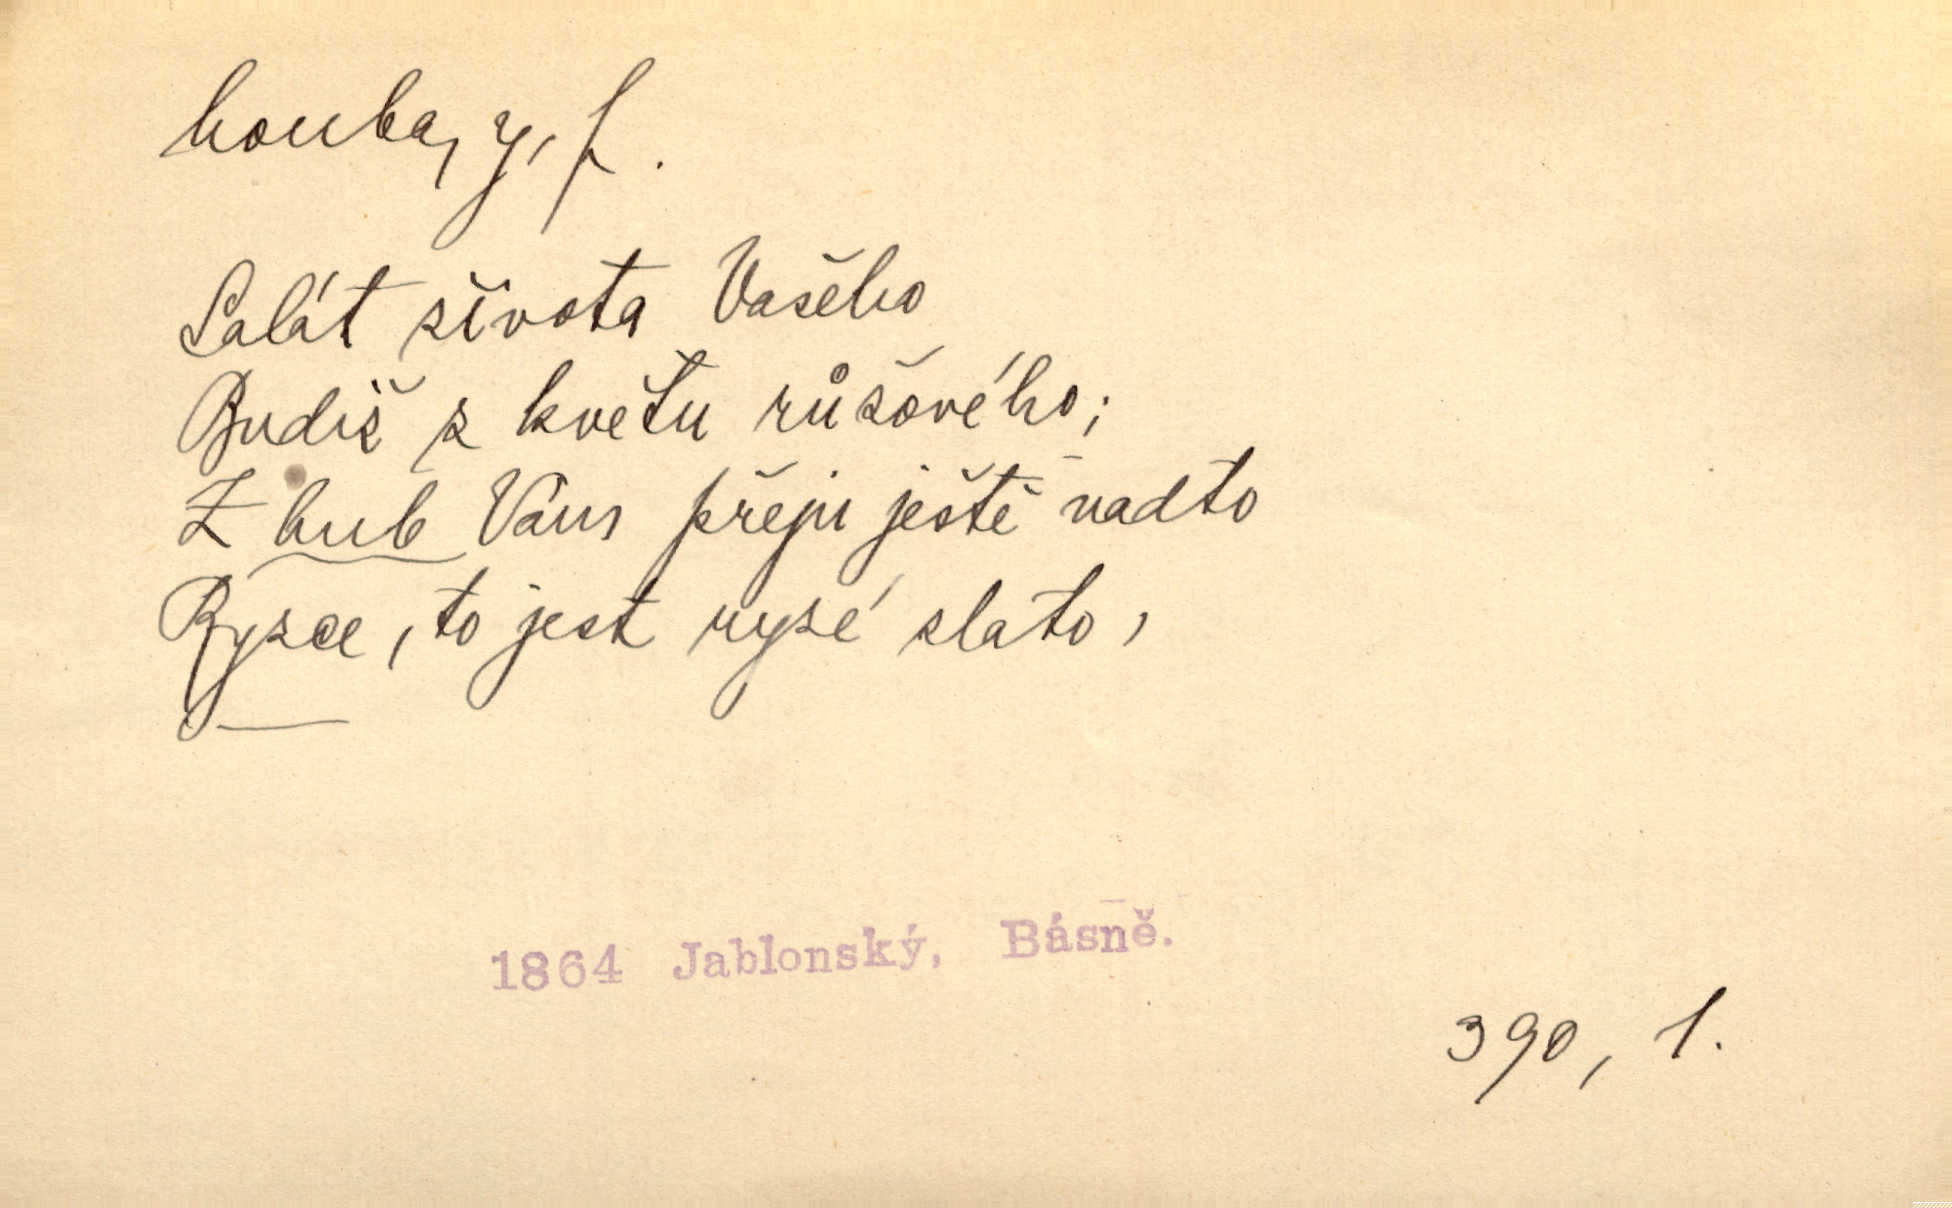 houba, y, f.
Salát života Vašeho
Budiž z květu růžového;
Z hub Vám přeju ještě nadto
Ryzce, to jest ryzé zlato,
1864 Jablonský, Básně.
390, 1.